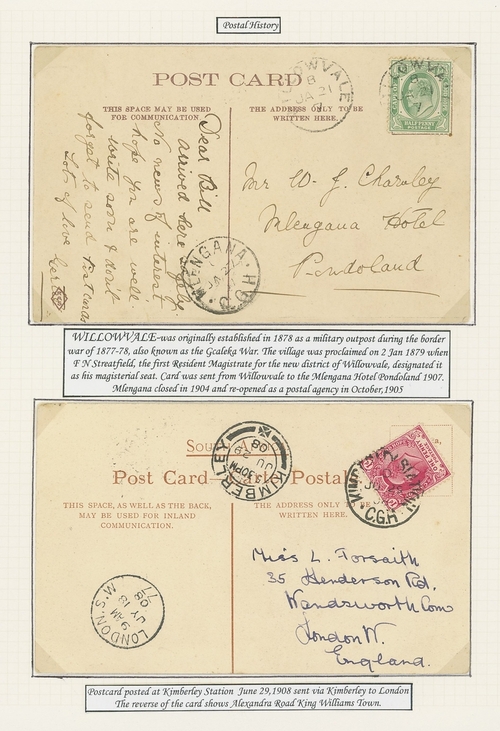 Postal History
POST CARD
THIS SPACE MAY BE USED
FOR COMMUNICATION
THE ADDRESS ONLY TO BE
WRITTEN HERE.
WILLOWVALE
JA 21
WILLOWVALE
HALF PENNY
POSTAGE
Dear Bill
arrived here safely
No news of interest
hope you are well.
write soon & don't
forget to send postcards
Lots of love Gert
Mr W. J. Charnley
Mlengana Hotel
Pondoland
MLENGANA. H O
WILLOWVALE-was originally established in 1878 as a military outpost during the border
war of 1877-78, also known as the Gcaleka War. The village was proclaimed on 2 Jan 1879 when
F N Streatfeild, the first Resident Magistrate for the new district of Willowvale, designated it
as his magisterial seat. Card was sent from Willowvale to the Mlengana Hotel Pondoland 1907.
Mlengana closed in 1904 and re-opened as a postal agency in October,1905
Sou
Post Card Carter Postale
THIS SPACE, AS WELL AS THE BACK,
MAY BE USED FOR INLAND
COMMUNICATION.
THE ADDRESS ONLY TO
WRITTEN HERE.
KIMBERLEY
30 PM
JU
29
08
C.G.H
LONDON. S.W
9 AM
18
JY
08
77
Miss L. Forsaith
35 Henderson Rd.
Wandsworth Com
London W.
England.
Postcard posted at Kimberley Station June 29,1908 sent via Kimberley to London
The reverse of the card shows Alexandra Road King Williams Town.